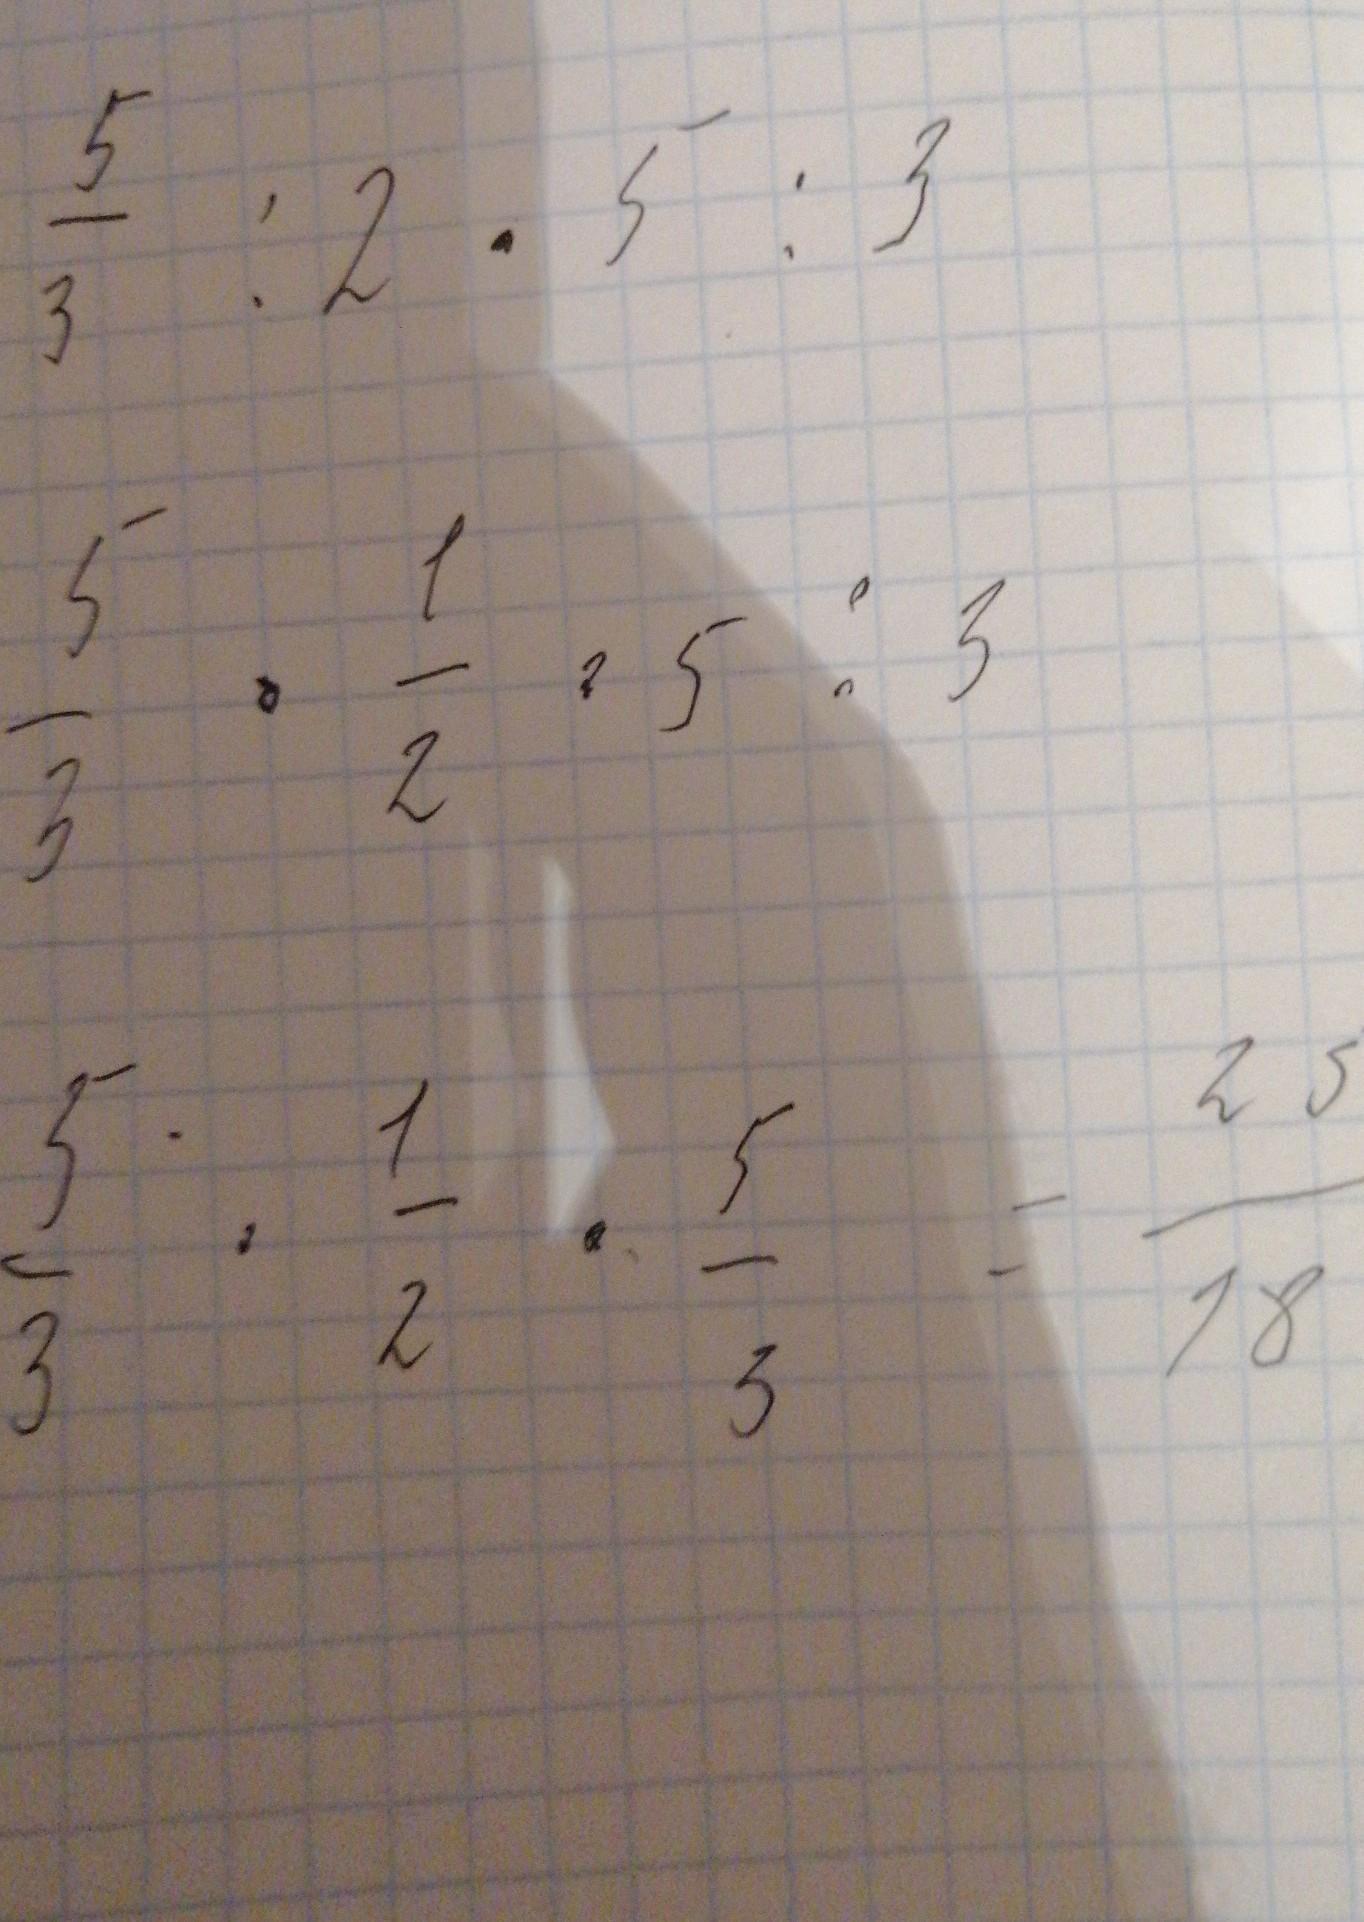 5/3 : 2 · 5 : 3
5/3 · 1/2 · 5 : 3
5/3 · 1/2 · 5/3 = 25/18